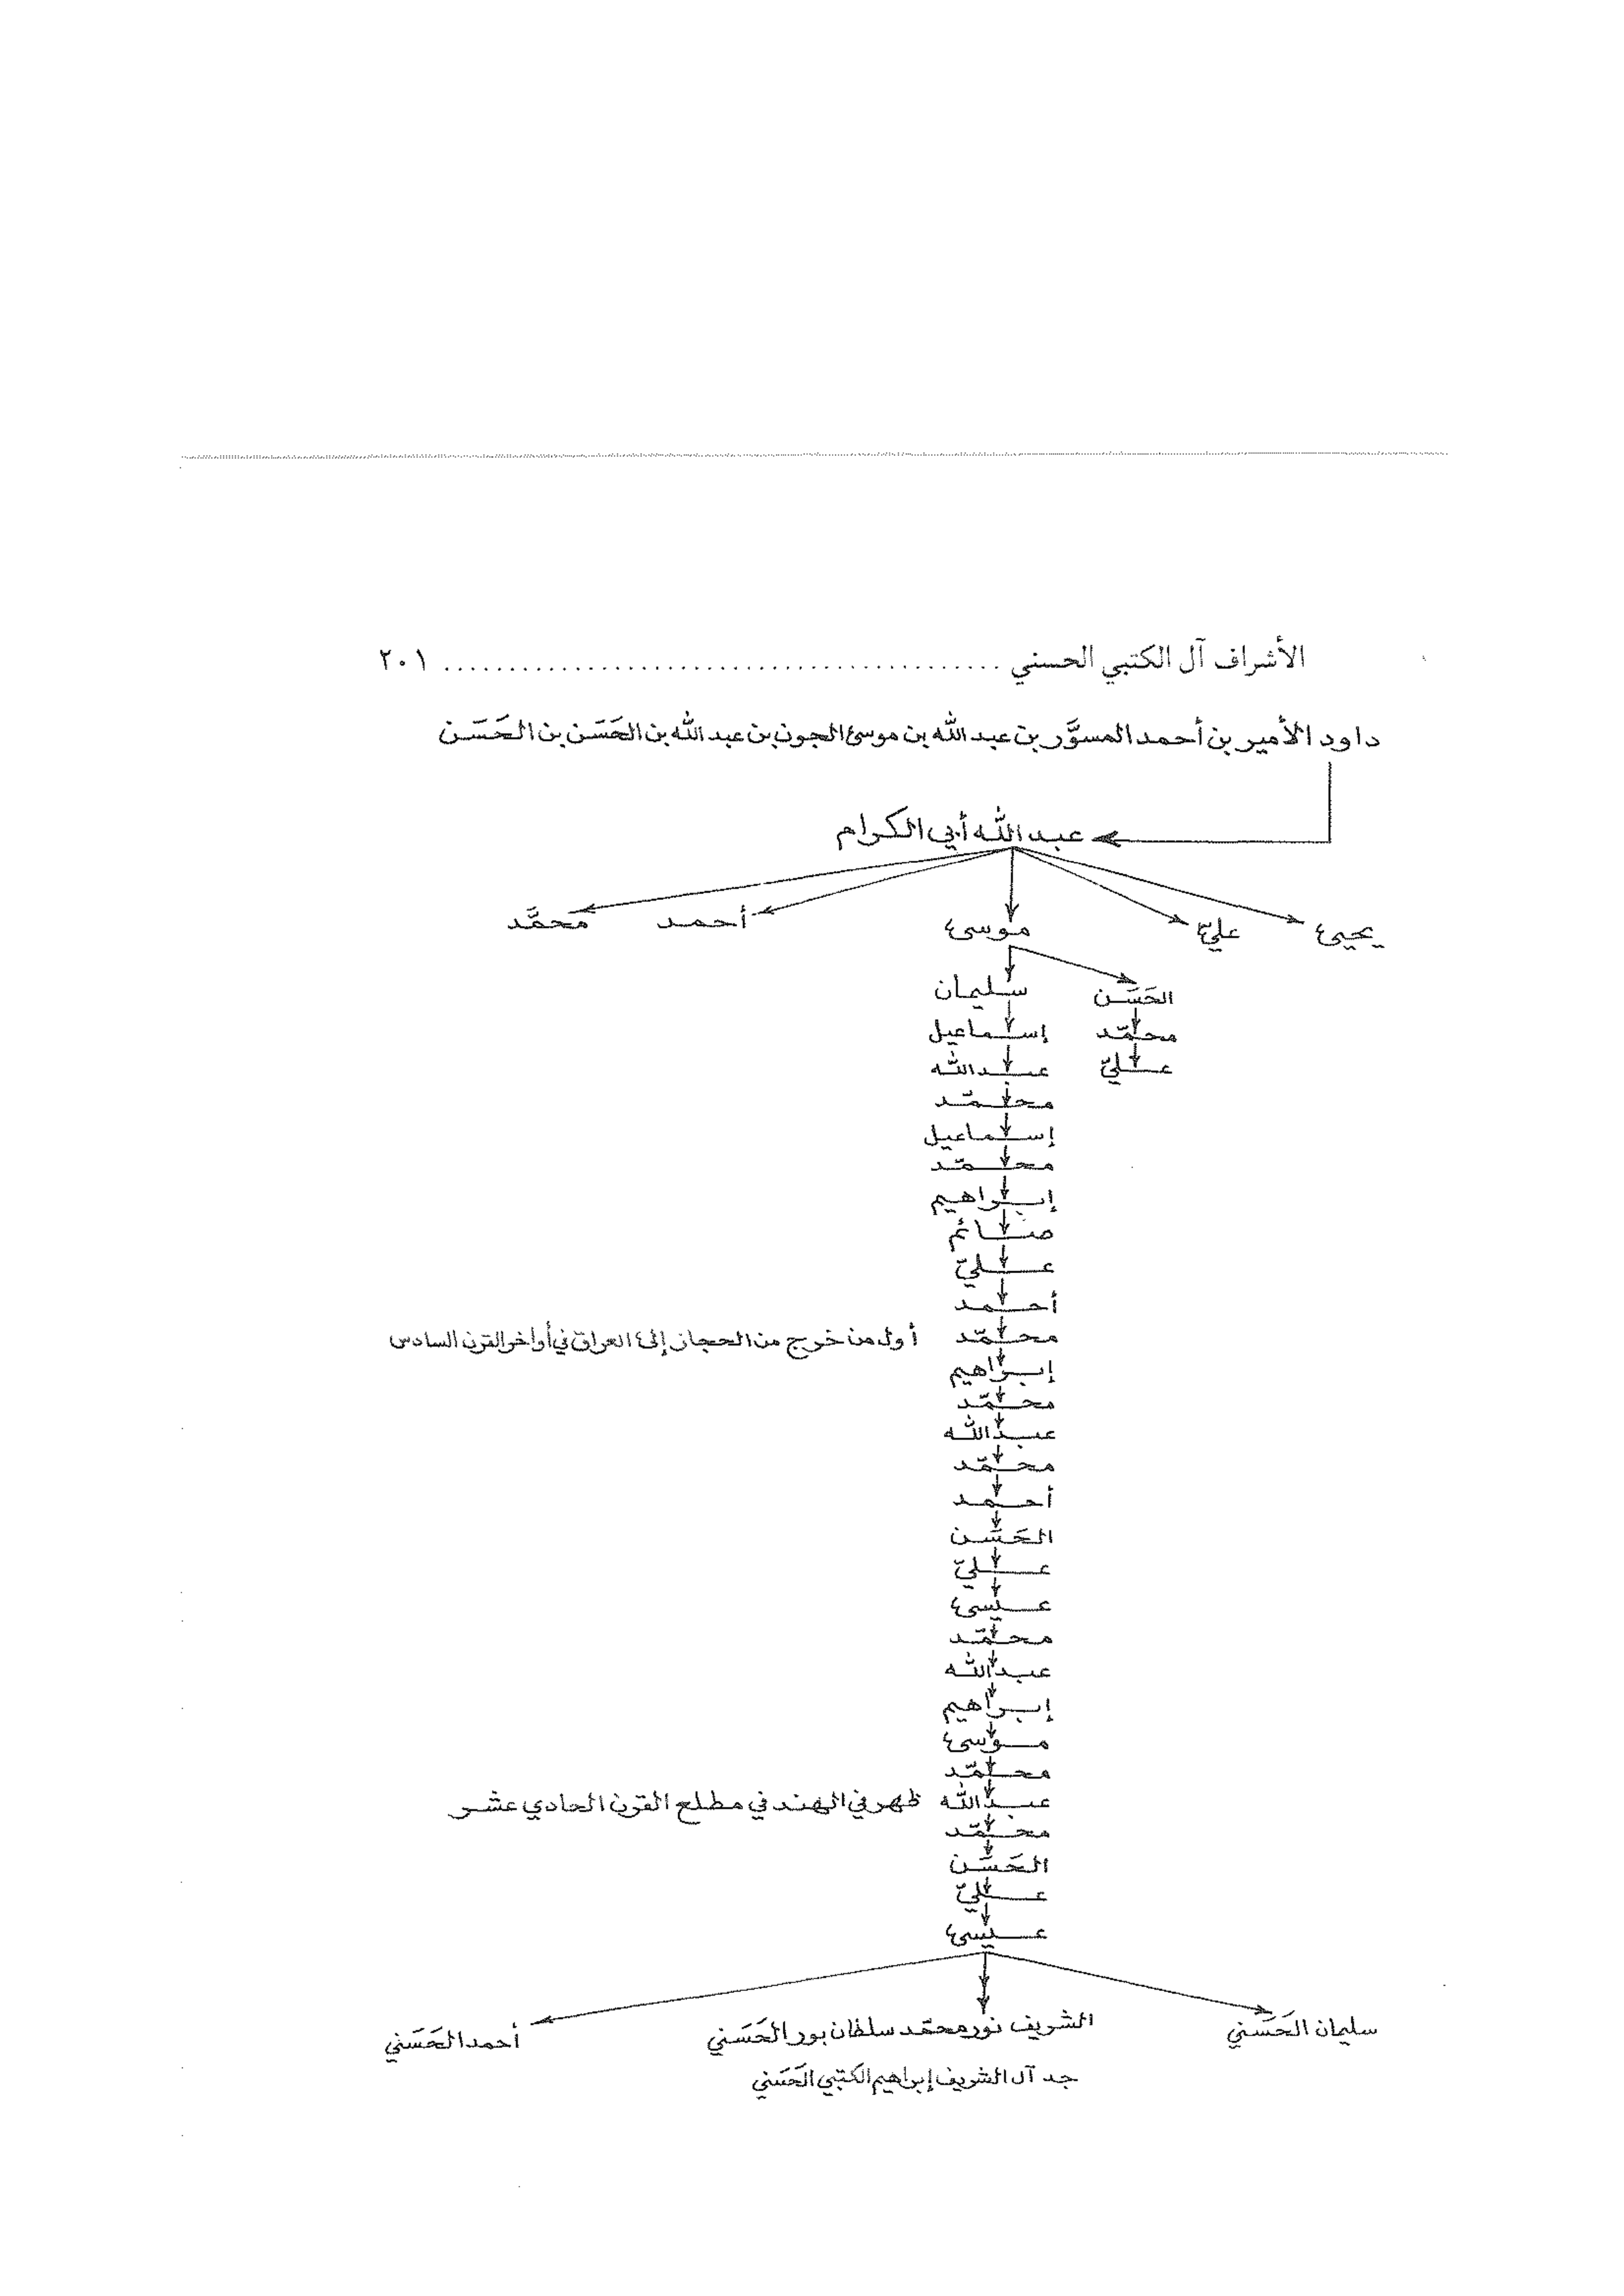 الأشراف آل الكتبي الحسني ........................................ ٢٠١
داود الأمير بن أحمد المسوَّر بن عبد الله بن موسىٰ الجون بن عبد الله بن الحَسَن بن الحَسَن
عبد الله أبي الكرام
يحيىٰ عليّ موسىٰ أحمد محمَّد
الحَسَن سليمان
محمّد إسماعيل
عليّ عبد الله
محمّد
إسماعيل
محمّد
إبراهيم
صائم
عليّ
أحمد
محمّد أول من خرج من الحجاز إلىٰ العراق في أواخر القرن السادس
إبراهيم
محمّد
عبد الله
محمّد
أحمد
الحَسَن
عليّ
عيسىٰ
محمّد
عبد الله
إبراهيم
موسىٰ
محمّد
عبد الله ظهر في الهند في مطلع القرن الحادي عشر
محمّد
الحَسَن
عليّ
عيسىٰ
سليمان الحَسَني الشريف نور محمّد سلطان بور الحَسَني أحمد الحَسَني
جد آل الشريف إبراهيم الكتبي الحَسَني